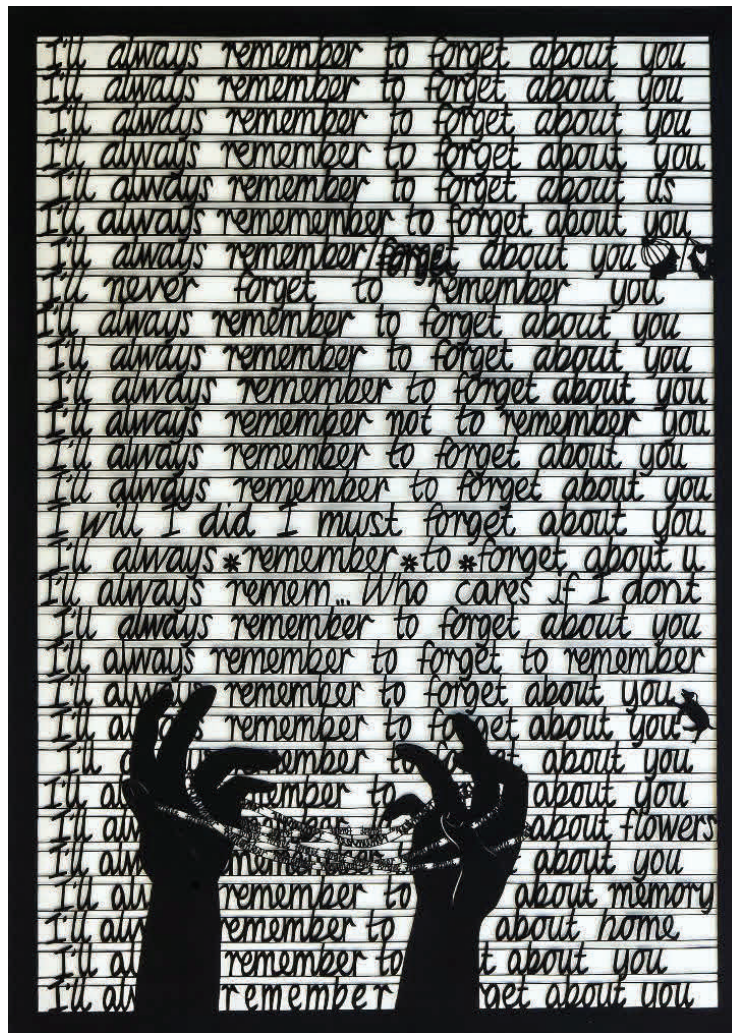 I'll always remember to forget about you
I'll always remember to forget about you
I'll always remember to forget about you
I'll always remember to forget about you
I'll always remember to forget about us
I'll always rememember to forget about you
I'll always remember/forget about you
I'll never forget to remember you
I'll always remember to forget about you
I'll always remember to forget about you
I'll always remember to forget about you
I'll always remember not to remember you
I'll always remember to forget about you
I'll always remember to forget about you
I will I did I must forget about you
I'll always *remember*to *forget about u
I'll always remem... Who cares if I dont
I'll always remember to forget about you
I'll always remember to forget to remember
I'll always remember to forget about you
I'll always remember to forget about you
I'll ember to get about you
I'll ember to about you
I'll about flowers
I'll about you
I'll remember to about memory
I'll emember to about home
I'll remember to about you
I'll remember get about you